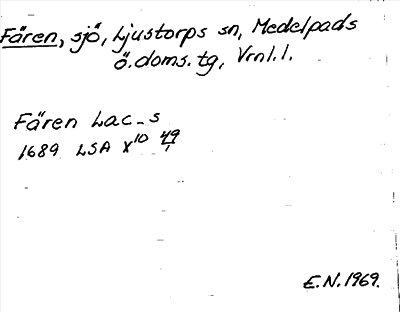 Fären, sjö, Ljustorps sn, Medelpads
ö. doms. tg, Vrnl. l.
Fären Lac_s
1689 LSA X¹⁰ 49/1
E.N. 1969.